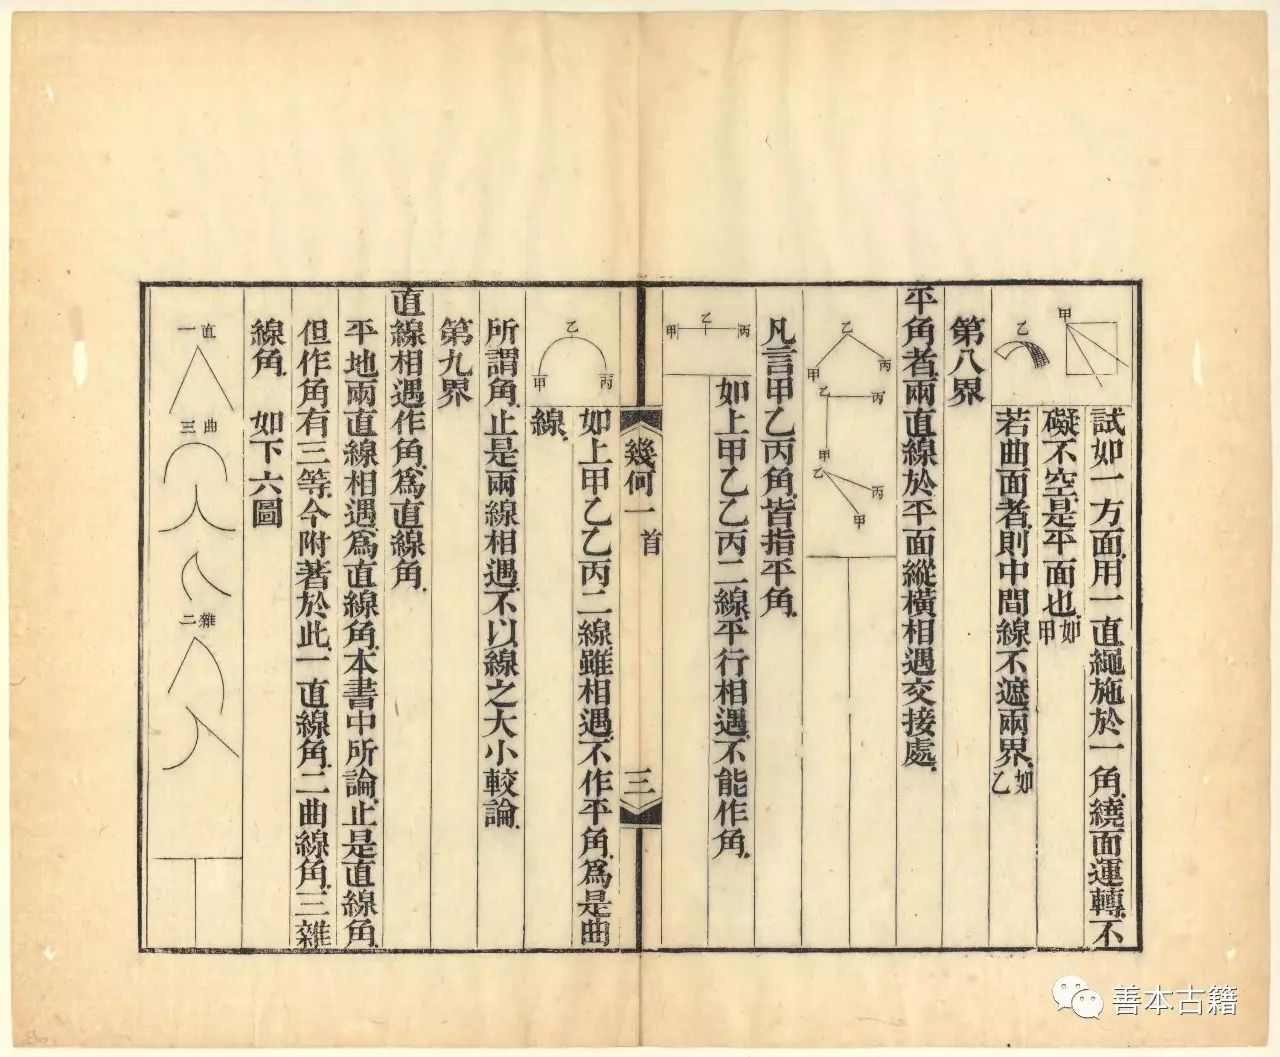 甲
乙
試如一方面用一直繩施於一角繞面運轉不
礙不空是平面也如甲
若曲面者則中間線不遮兩界如乙
第八界
平角者兩直線於平面縱橫相遇交接處
乙
甲 丙
乙 丙
甲
乙 丙
甲
凡言甲乙丙角皆指平角
甲 乙 丙
如上甲乙乙丙二線平行相遇不能作角
幾何一 首
三
乙
甲 丙
如上甲乙乙丙二線雖相遇不作平角爲是曲
線
所謂角止是兩線相遇不以線之大小較論
第九界
直線相遇作角爲直線角
平地兩直線相遇爲直線角本書中所論止是直線角
但作角有三等今附著於此一直線角二曲線角三雜
線角 如下六圖
直 一
曲 三
雜 二
善本古籍